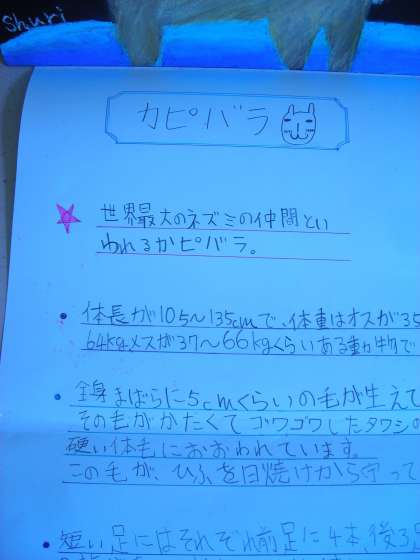 Shuri
カピバラ
世界最大のネズミの仲間とい
われるカピバラ。
体長が105~135cmで、体重はオスが35
64kg、メスが37~66kgくらいある動物で
全身まばらに5cmくらいの毛が生えて
その毛がかたくてゴワゴワしたタワシの
硬い体毛におおわれています。
この毛が、ひふを日焼けから守って
短い足にはそれぞれ前足に4本後3